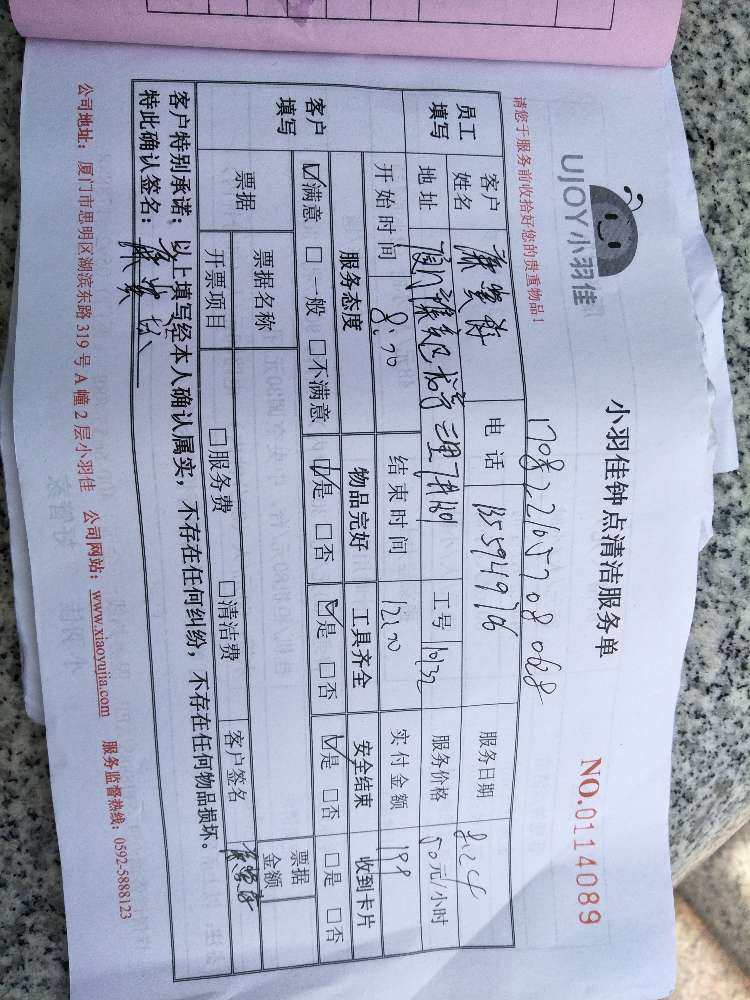 UJOY小羽佳
小羽佳钟点清洁服务单
NO.0114089
请您于服务前收拾好您的贵重物品！
员工填写
客户姓名
电话 135594976
服务日期 8.24
地址
工号 10132
服务价格 50元/小时
开始时间 8:00
结束时间 12:00
实付金额 198
客户填写
服务态度 物品完好 工具齐全 安全结束 收到卡片
☑满意 □一般 □不满意 ☑是 □否 ☑是 □否 ☑是 □否 □是 □否
票据
票据名称
票据金额
开票项目 □服务费 □清洁费 客户签名
客户特别承诺：以上填写经本人确认属实，不存在任何纠纷，不存在任何物品损坏。
特此确认签名：
公司地址：厦门市思明区湖滨东路 319 号 A 幢 2 层小羽佳 公司网站：www.xiaoyujia.com 服务监督热线：0592-5888123